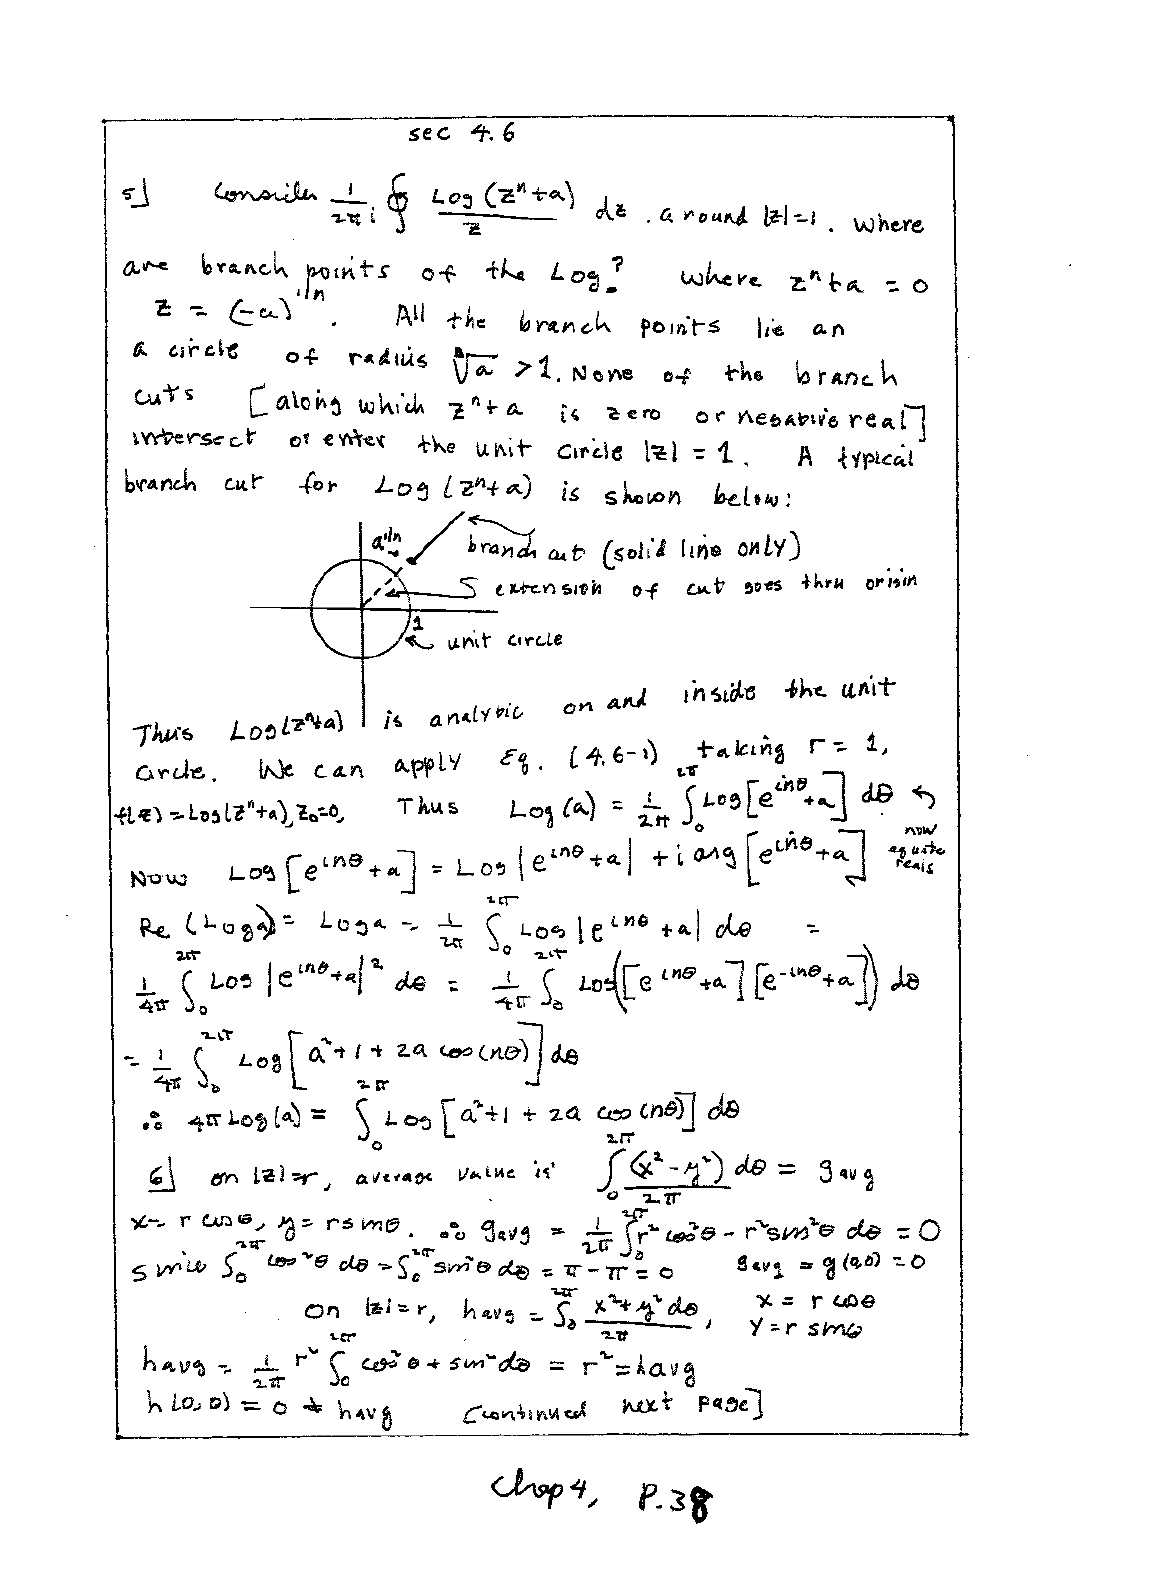 sec 4.6
5] Consider 1/2πi ∮ Log(zⁿ+a)/z dz. around |z|=1. Where
are branch points of the Log? Where zⁿ+a = 0
z = (-a)^1/n. All the branch points lie an
a circle of radius ⁿ√a >1. None of the branch
cuts [along which zⁿ+a is zero or negative real]
intersect or enter the unit circle |z| = 1. A typical
branch cut for Log(zⁿ+a) is shown below:
a^1/n
branch cut (solid line only)
extension of cut goes thru origin
1
unit circle
Thus Log(zⁿ+a) is analytic on and inside the unit
circle. We can apply Eq. (4.6-1) taking r = 1,
f(z) = Log(zⁿ+a), z₀=0, Thus Log(a) = 1/2π ∫₀^2π Log[e^inθ + a] dθ
now equate reals
Now Log[e^inθ + a] = Log|e^inθ + a| + i arg[e^inθ + a]
Re(Log a) = Log a = 1/2π ∫₀^2π Log|e^inθ + a| dθ =
1/4π ∫₀^2π Log|e^inθ + a|² dθ = 1/4π ∫₀^2π Log([e^inθ + a][e^-inθ + a]) dθ
= 1/4π ∫₀^2π Log[a²+1+2a cos(nθ)] dθ
∴ 4π Log(a) = ∫₀^2π Log[a²+1+2a cos(nθ)] dθ
6] on |z|=r, average value is ∫₀^2π (x²-y²)dθ/2π = g avg
x = r cosθ, y = r sinθ. ∴ g avg = 1/2π ∫₀^2π r²cos²θ - r²sin²θ dθ = 0
since ∫₀^2π cos²θ dθ - ∫₀^2π sin²θ dθ = π-π = 0 g avg = g(0,0) = 0
On |z|=r, h avg = ∫₀^2π x²+y² dθ/2π, x = r cosθ
y = r sinθ
h avg = 1/2π r² ∫₀^2π cos²θ + sin² dθ = r² = h avg
h(0,0) = 0 ≠ h avg [continued next page]
Chap 4, P.38